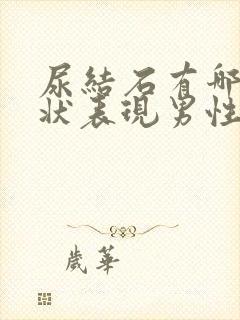 尿結石有哪
狀表現男性
歲華